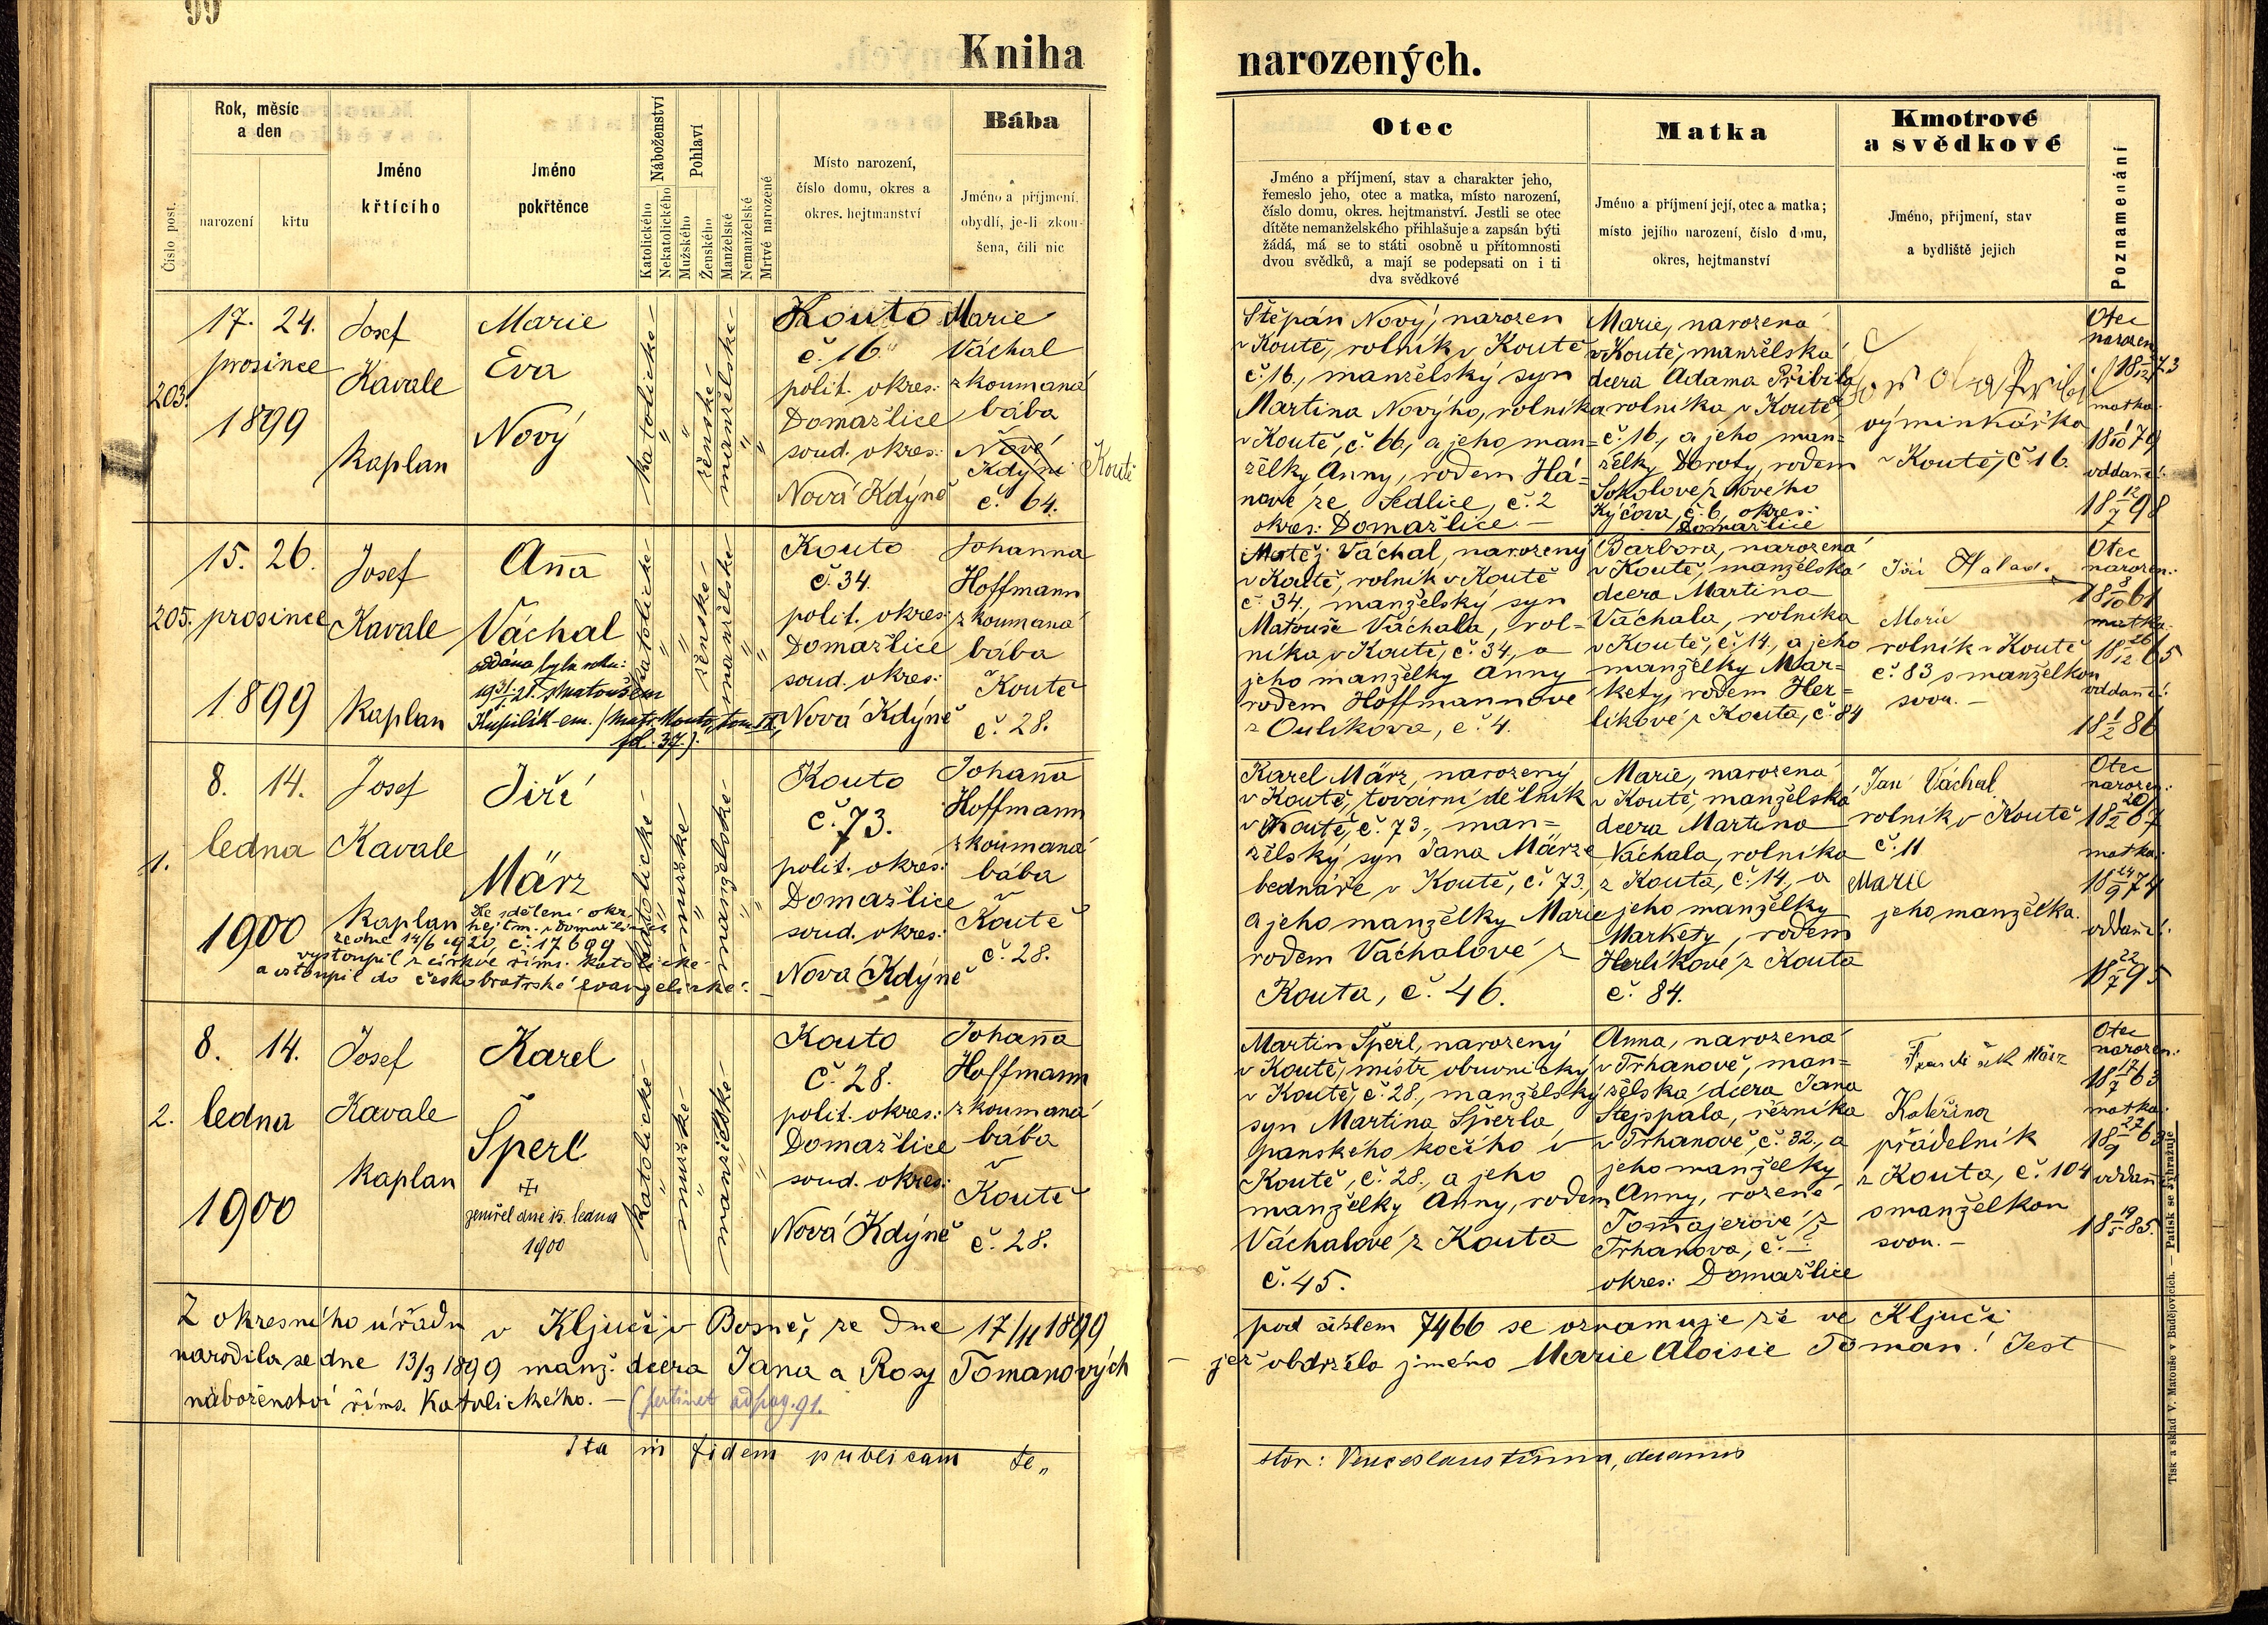 99
Kniha
narozených.
Číslo post.
Rok, měsíc
a den
narození
křtu
Jméno
křtícího
Jméno
pokřtěnce
Náboženství
Katolického
Nekatolického
Pohlaví
Mužského
Ženského
Manželské
Nemanželské
Mrtvé narozené
Místo narození,
číslo domu, okres a
okres. hejtmanství
Bába
Jméno a příjmení,
obydlí, je-li zkou-
šena, čili nic
Otec
Jméno a příjmení, stav a charakter jeho,
řemeslo jeho, otec a matka, místo narození,
číslo domu, okres. hejtmanství. Jestli se otec
dítěte nemanželského přihlašuje a zapsán býti
žádá, má se to státi osobně u přítomnosti
dvou svědků, a mají se podepsati on i ti
dva svědkové
Matka
Jméno a příjmení její, otec a matka;
místo jejího narození, číslo domu,
okres, hejtmanství
Kmotrové
a svědkové
Jméno, příjmení, stav
a bydliště jejich
Poznamenání
203.
17. 24.
prosince
1899
Josef
Kavale
kaplan
Marie
Eva
Nový
katolické
ženské
manželské
Kouto
č. 16.
polit. okres:
Domažlice
soud. okres:
Nová Kdýně
Marie
Váchal
zkoumaná
bába
Nové
Kdýni Koutě
č. 64.
Štěpán Nový, narozen
v Koutě, rolník v Koutě
č. 16., manželský syn
Martina Nového, rolníka
v Koutě, č. 66, a jeho man=
želky Anny, rodem Há=
nové ze Sedlice, č. 2
okres: Domažlice. —
Marie, narozená
v Koutě, manželská
dcera Adama Přibila
rolníka v Koutě,
č. 16., a jeho man=
želky Doroty, rodem
Sokolové z Nového
Kýčova, č. 6, okres:
Domažlice
výminkářka
v Koutě, č. 16.
Otec
narozen
matka:
oddaní:
205.
15. 26.
prosince
1899
Josef
Kavale
kaplan
Anna
Váchal
oddána byla roku:
Kupilík-em. (Matr. Kouto, tom. IX,
fol. 37.).
katolické
ženské
manželské
Kouto
č. 34.
polit. okres:
Domažlice
soud. okres:
Nová Kdýně
Johanna
Hoffmann
zkoumaná
bába
Koutě
č. 28.
Matěj Váchal, narozený
v Koutě, rolník v Koutě
č. 34., manželský syn
Matouše Váchala, rol=
níka v Koutě, č. 34, a
jeho manželky Anny
rodem Hoffmannové
z Oulíkova, č. 4.
Barbora, narozená
v Koutě, manželská
dcera Martina
Váchala, rolníka
v Koutě, č. 14., a jeho
manželky Mar=
kety, rodem Her=
líkové z Kouta, č. 84
Jiří
Marie
rolník v Koutě
č. 83 s manželkou
svou. —
Otec
narozen:
matka:
oddaní:
1.
8. 14.
ledna
1900
Josef
Kavale
kaplan
Jiří
März
Dle sdělení okr.
hejtm. v Domažlicích
ze dne 14/6 1920, č. 17699
vystoupil z církve řím. katolické
a vstoupil do českobratrské evangelické.
katolické
mužské
manželské
Kouto
č. 73.
polit. okres:
Domažlice
soud. okres:
Nová Kdýně
Johanna
Hoffmann
zkoumaná
bába
v
Koutě
č. 28.
Karel März, narozený
v Koutě, tovární dělník
v Koutě, č. 73., man=
želský syn Jana Märze
bednáře v Koutě, č. 73,
a jeho manželky Marie
rodem Váchalové z
Kouta, č. 46.
Marie, narozená
v Koutě, manželská
dcera Martina
Váchala, rolníka
z Kouta, č. 14, a
jeho manželky
Markety, rodem
Herlíkové z Kouta
č. 84.
Jan Váchal
rolník v Koutě
č. 11
Marie
jeho manželka.
Otec
narozen:
matka:
oddaní:
2.
8. 14.
ledna
1900
Josef
Kavale
kaplan
Karel
Šperl
zemřel dne 15. ledna
1900
katolické
mužské
manželské
Kouto
č. 28.
polit. okres:
Domažlice
soud. okres:
Nová Kdýně
Johanna
Hoffmann
zkoumaná
bába
v
Koutě
č. 28.
Martin Šperl, narozený
v Koutě, mistr obuvnický
v Koutě, č. 28., manželský
syn Martina Šperla
panského kočího v
Koutě, č. 28., a jeho
manželky Anny, rodem
Váchalové z Kouta
č. 45.
Anna, narozená
v Trhanově, man=
želská dcera Jana
Stejspala, řezníka
v Trhanově, č. 32., a
jeho manželky
Anny, rozené
Tomajerové z
Trhanova, č. —
okres: Domažlice
František März
Kateřina
přádelník
z Kouta, č. 104
s manželkou
svou. —
Otec
narozen:
matka:
oddaní
Z okresního úřadu v Ključi v Bosně, ze dne 17/11 1899 pod číslem 7466 se oznamuje že ve Ključi
narodila se dne 13/3 1899 manž. dcera Jana a Rosy Tomanových — jež obdržela jméno Marie Aloisie Toman. Jest
náboženství řím. katolického. — (pertinet ad pag. 91.
Ita in fidem publicam te„
stor: Venceslaus
Tisk a sklad V. Matouše v Budějovicích. — Patisk se vyhražuje